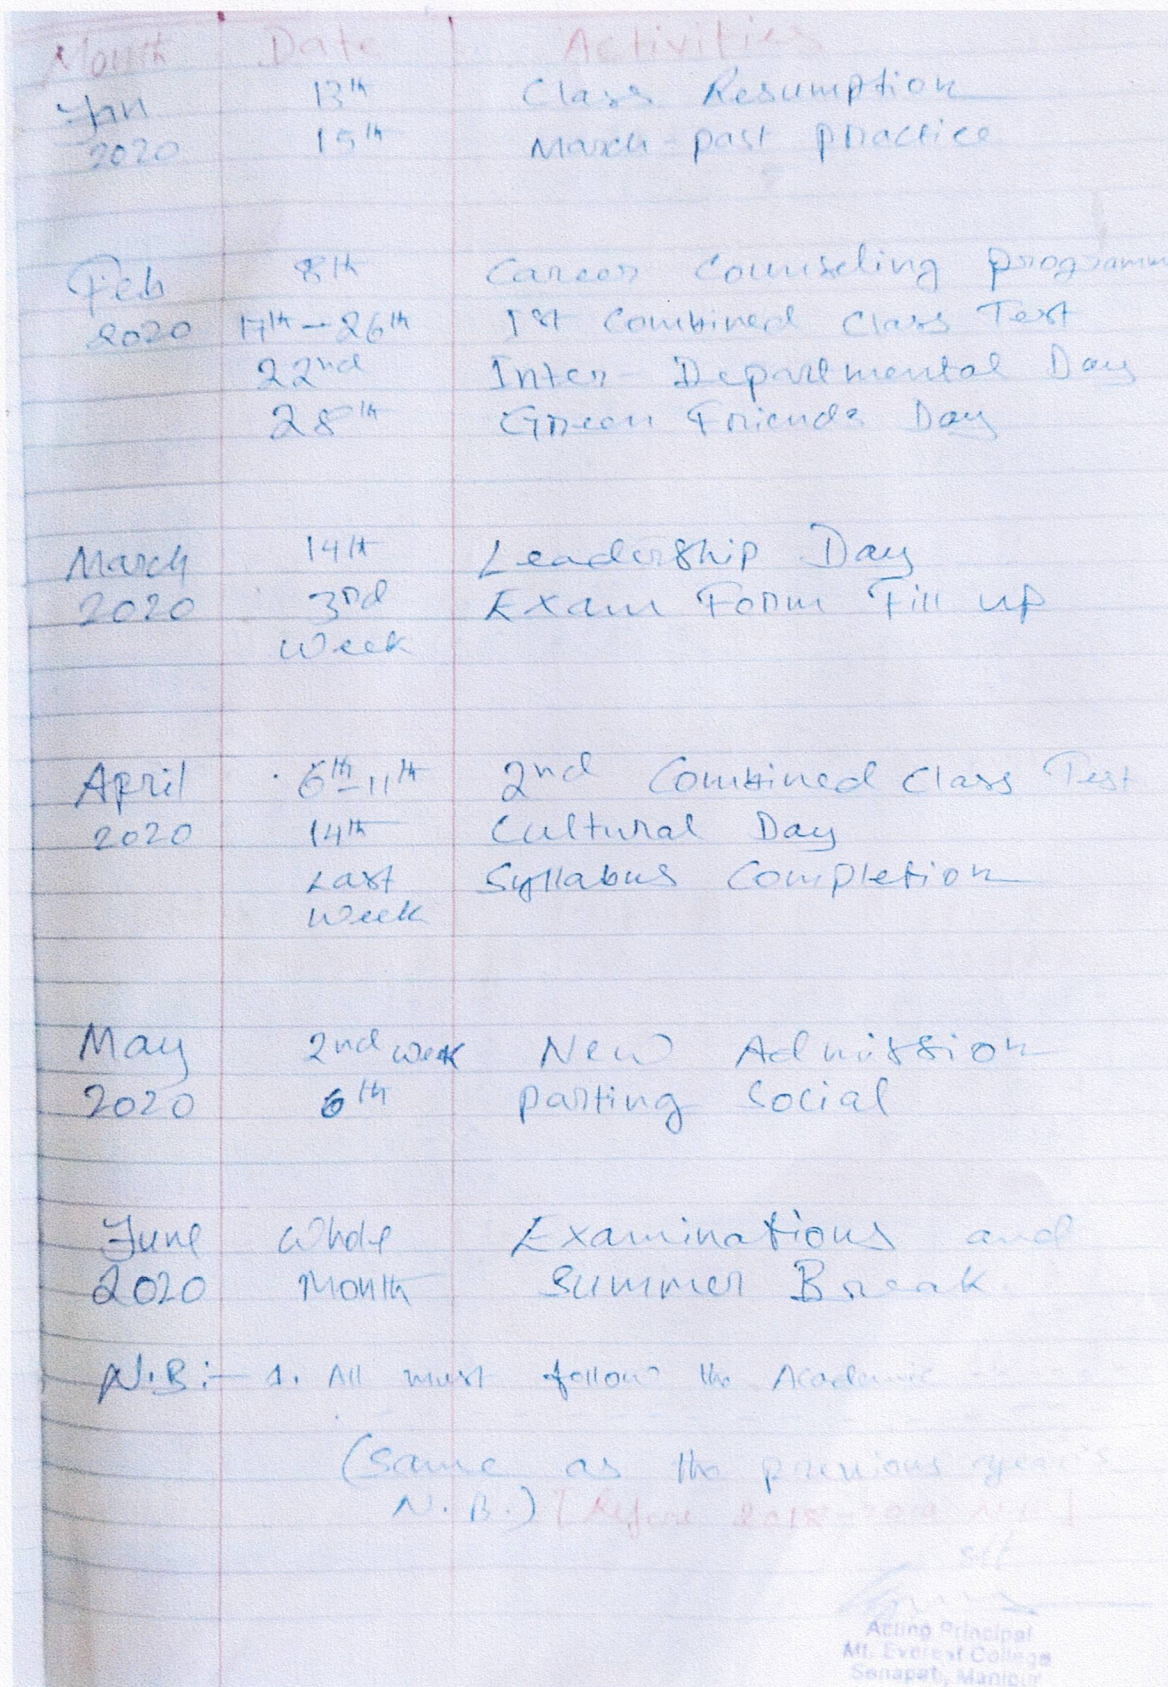 Month Date Activities
Jan 13th Class Resumption
2020 15th March-past practice
Feb 8th Career Counseling programm
2020 17th-26th 1st Combined Class Test
22nd Inter-Departmental Day
28th Green Friends Day
March 14th Leadership Day
2020 3rd Exam Form Fill up
Week
April 6th-11th 2nd Combined Class Test
2020 14th Cultural Day
Last Syllabus Completion
Week
May 2nd week New Admission
2020 6th parting Social
June Whole Examinations and
2020 Month Summer Break
N.B:- 1. All must follow the Academic
(Same as the previous year's
N.B.) [Refere 2018-2019 N.B]
Acting Principal
Mt. Everest College
Senapati, Manipur